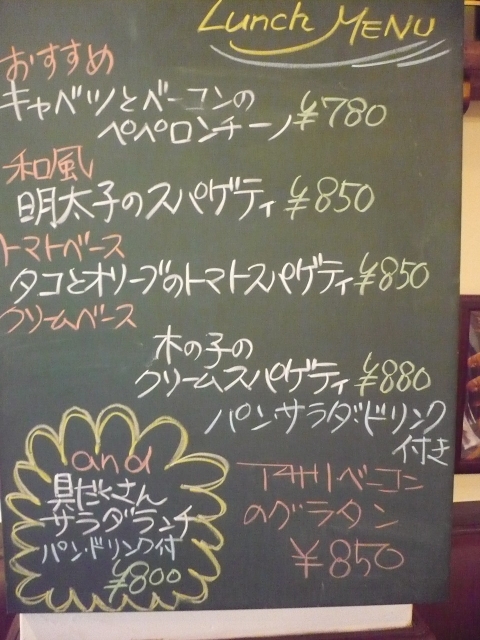 Lunch MENU
おすすめ
キャベツとベーコンの
ペペロンチーノ ¥780
和風
明太子のスパゲティ ¥850
トマトベース
タコとオリーブのトマトスパゲティ ¥850
クリームベース
木の子の
クリームスパゲティ ¥880
パン・サラダ・ドリンク
付き
and
具だくさん
サラダランチ
パン・ドリンク付
¥800
ベーコン
のグラタン
¥850